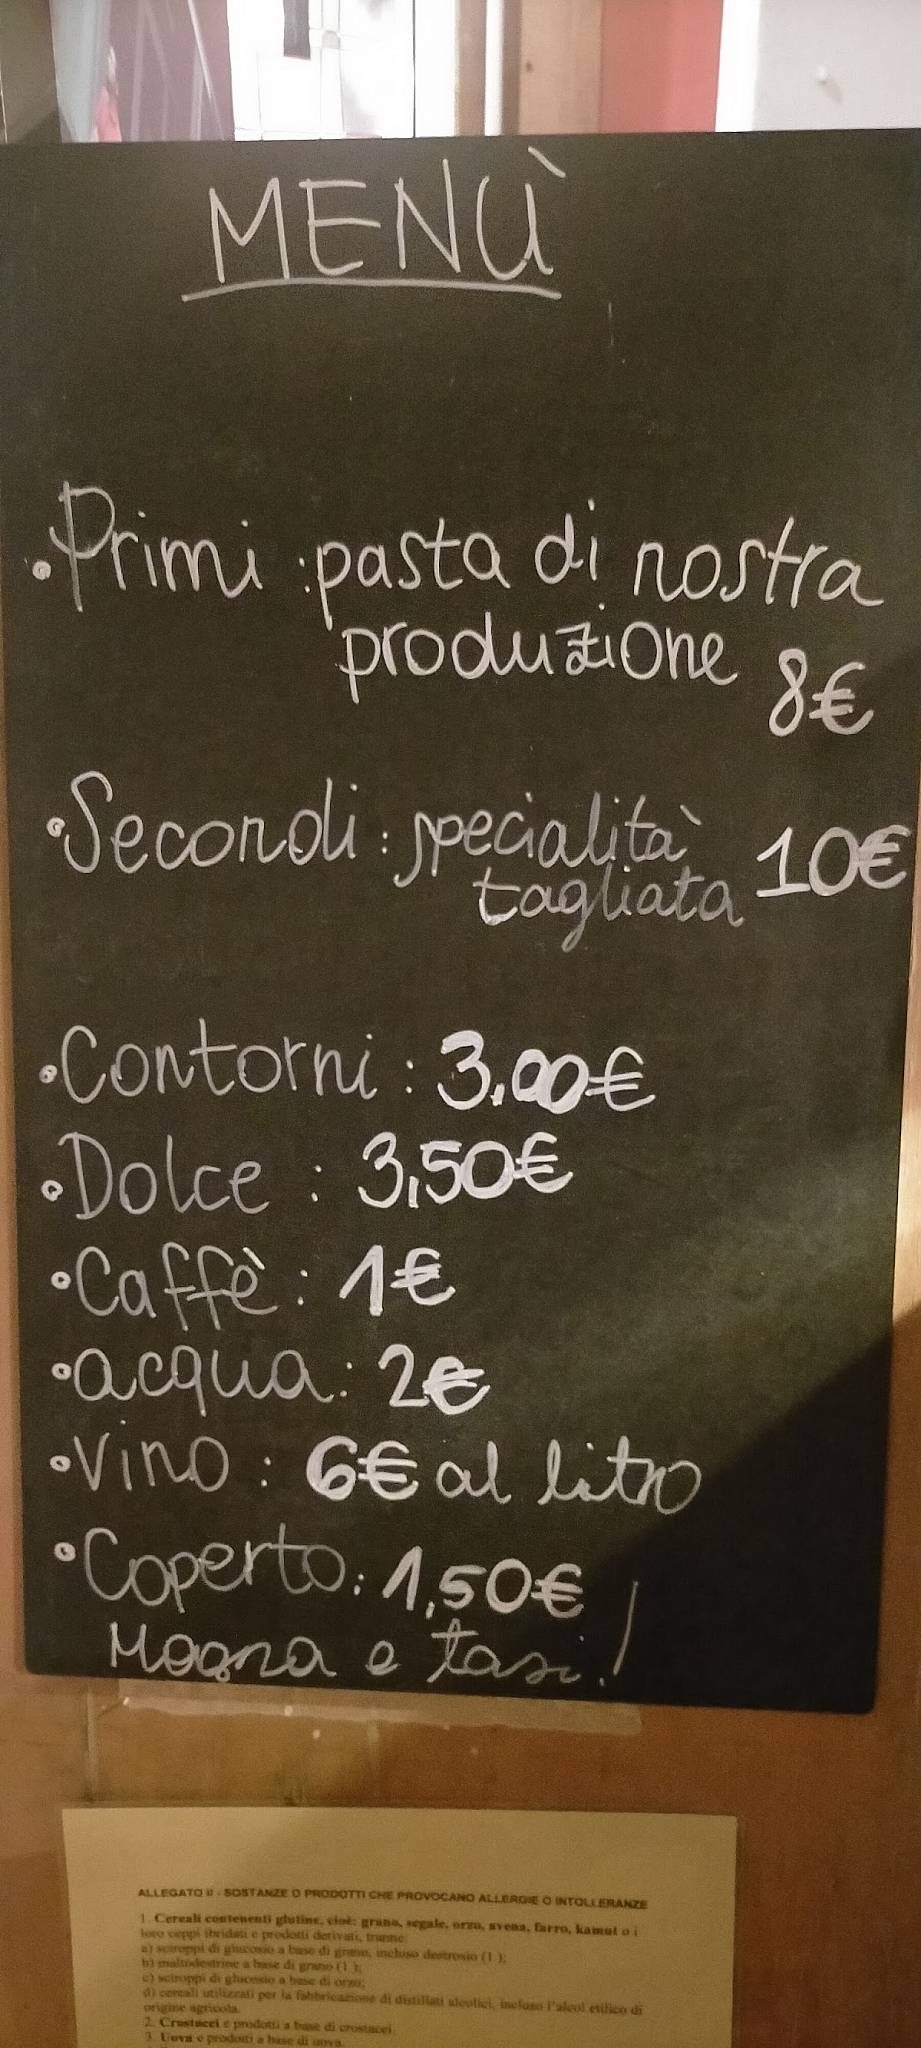 MENÙ
• Primi : pasta di nostra
produzione 8€
• Secondi : specialità
tagliata 10€
• Contorni : 3,00€
• Dolce : 3,50€
• Caffè : 1€
• acqua : 2€
• Vino : 6€ al litro
• Coperto : 1,50€
Magna e tasi!
ALLEGATO II - SOSTANZE O PRODOTTI CHE PROVOCANO ALLERGIE O INTOLLERANZE
1. Cereali contenenti glutine, cioè: grano, segale, orzo, avena, farro, kamut o i
loro ceppi ibridati e prodotti derivati, tranne:
a) sciroppi di glucosio a base di grano, incluso destrosio (1 );
b) maltodestrine a base di grano (1 );
c) sciroppi di glucosio a base di orzo;
d) cereali utilizzati per la fabbricazione di distillati alcolici, incluso l'alcol etilico di
origine agricola.
2. Crostacei e prodotti a base di crostacei.
3. Uova e prodotti a base di uova.